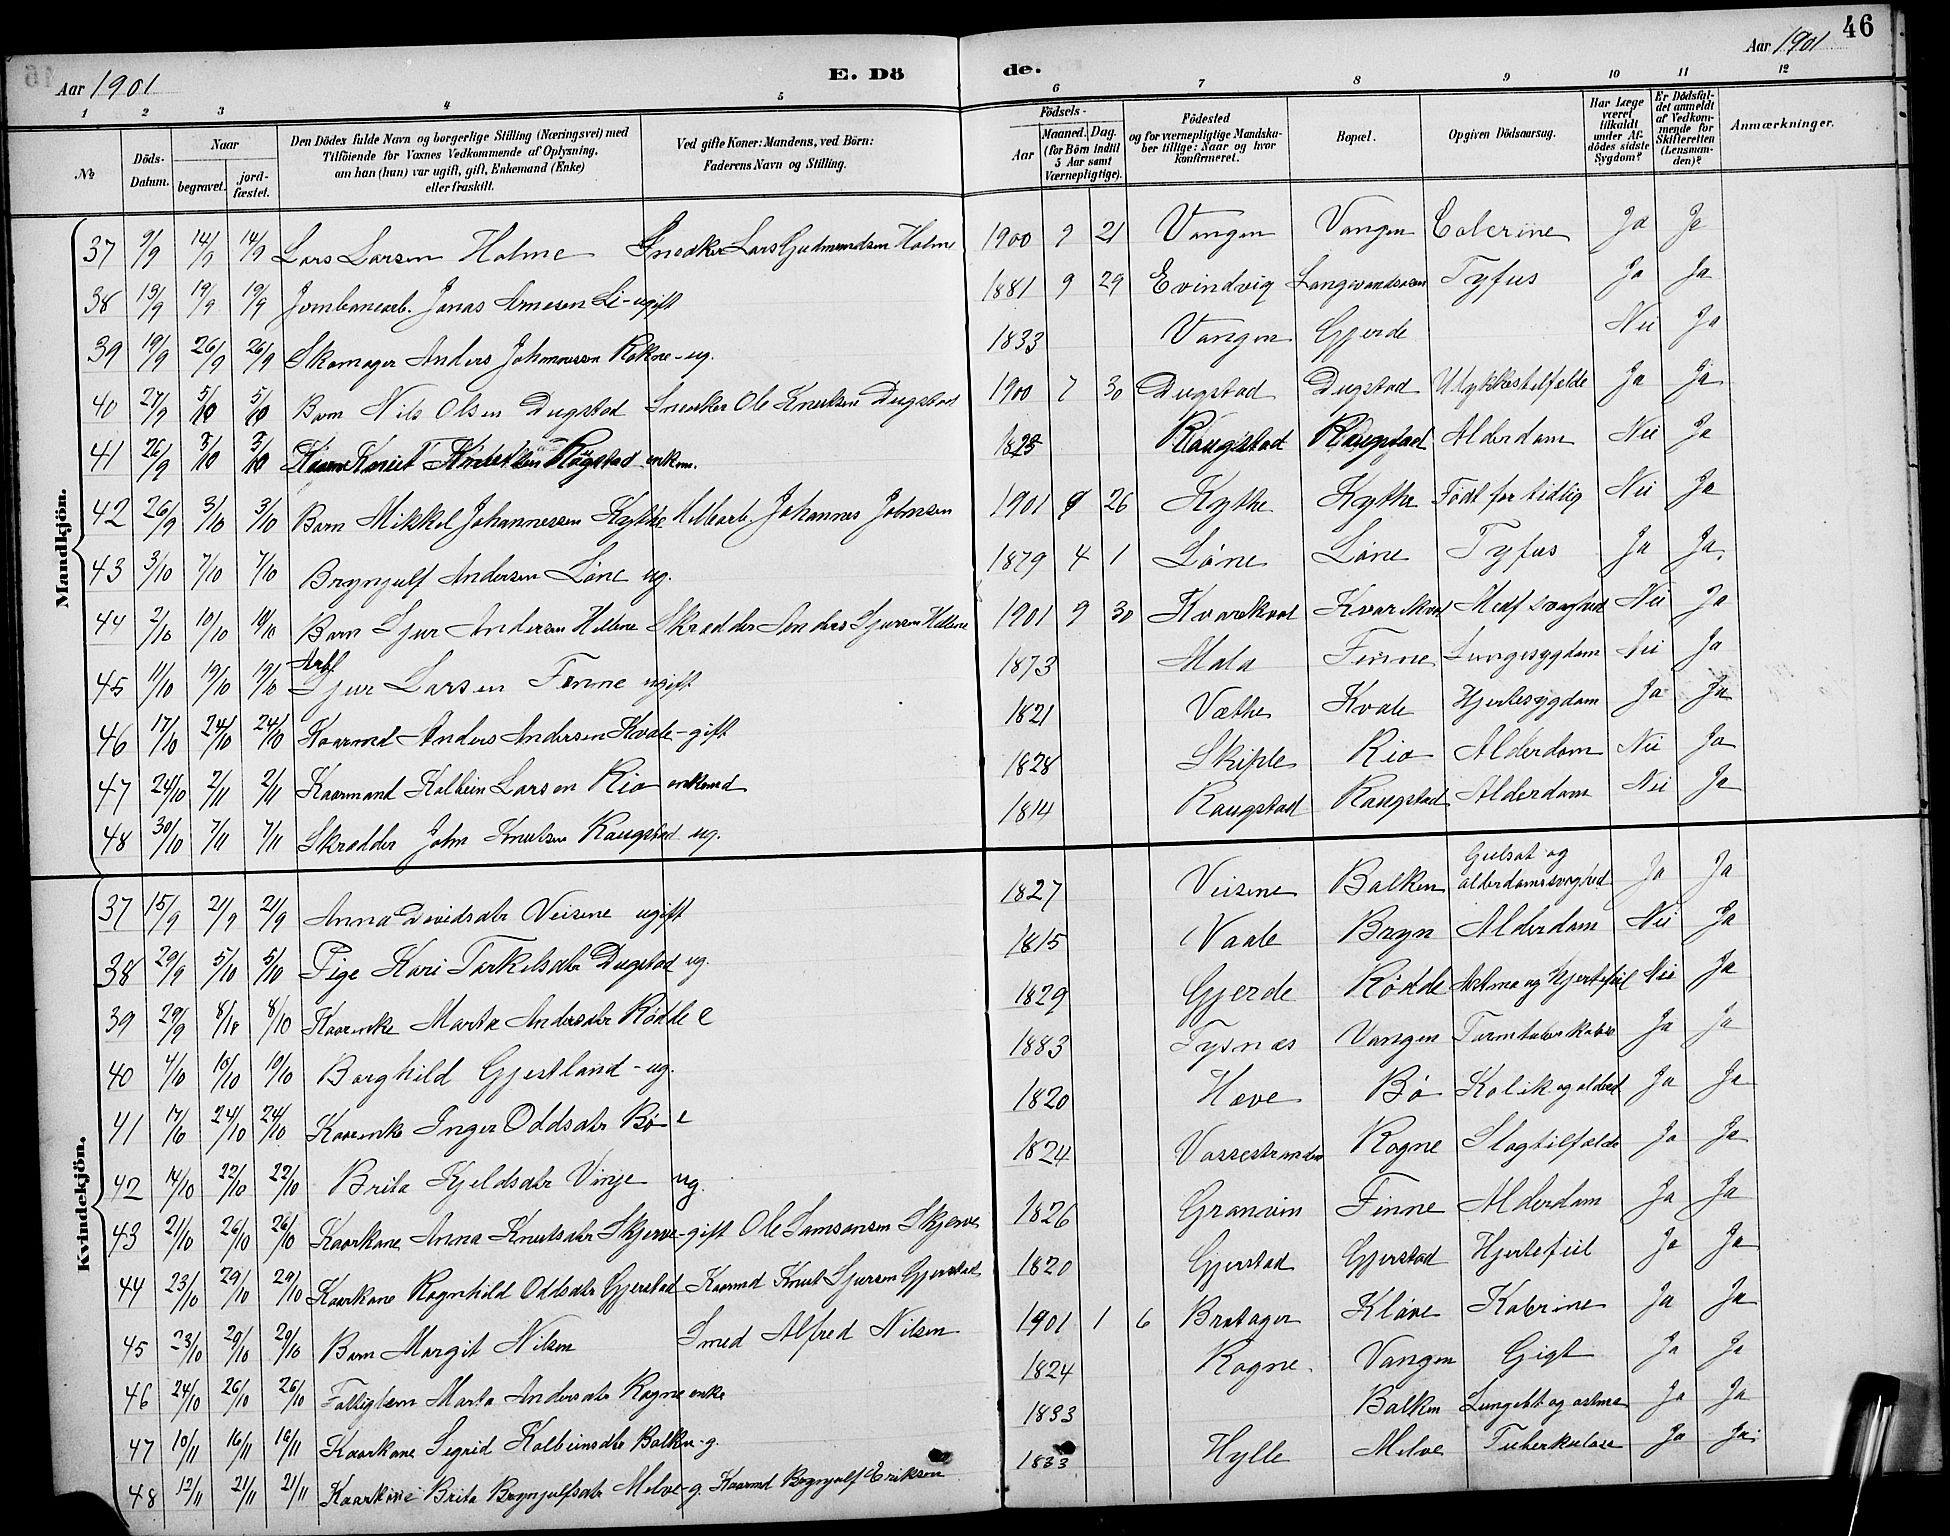 46
Aar 1901 E. Dö de. Aar 1901
1 2 3 4 5 6 7 8 9 10 11 12
№ Döds-Datum. Naar begravet. jordfæstet. Den Dödes fulde Navn og borgerlige Stilling (Næringsvei) med Tilföiende for Voxnes Vedkommende af Oplysning, om han (hun) var ugift, gift, Enkemand (Enke) eller fraskilt. Ved gifte Koner: Mandens, ved Börn: Faderens Navn og Stilling. Födsels- Aar Maaned. Dag. (for Börn indtil 5 Aar samt Værnepligtige). Födested og for værnepligtige Mandskaber tillige: Naar og hvor konfirmeret. Bopæl. Opgiven Dödsaarsag. Har Læge været tilkaldt under Afdödes sidste Sygdom? Er Dödsfaldet anmeldt af Vedkommende for Skifteretten (Lensmanden)? Anmærkninger.
Mandkjön.
37 9/9 14/9 14/9 Lars Larsen Holme Snedker Lars Gudmundsen Holme 1900 9 21 Vangen Vangen Colerine Ja Ja
38 13/9 19/9 19/9 Jernbanearb. Jonas Arnesen Li - ugift 1881 9 29 Evindvig Langevandsosen Tyfus Ja Ja
39 19/9 26/9 26/9 Skomager Anders Johannessen Rokne - ug. 1833 Vangen Gjerde Nei Ja
40 27/9 5/10 5/10 Barn Nils Olsen Dugstad Snedker Ole Knutsen Dugstad 1900 7 30 Dugstad Dugstad Ulykkestilfelde Ja Ja
41 26/9 3/10 3/10 Knut Knutsen Rögstad enkm. 1825 Raugstad Raugstad Alderdom Nei Ja
42 26/9 3/10 3/10 Barn Mikkel Johannessen Kythe Hellearb. Johannes Johnsen 1901 9 26 Kythe Kythe Född for tidlig Nei Ja
43 3/10 7/10 7/10 Brynjulf Andersen Löne ug. 1879 4 1 Löne Löne Tyfus Ja Ja.
44 2/10 10/10 10/10 Barn Sjur Andersen Hellene Skrædder Anders Sjursen Hellene 1901 9 30 Kvarekval Kvarekval Medf svaghed Nei Ja
45 11/10 19/10 19/10 Arb. Sjur Larsen Finne ugift 1873 Mala Finne Lungesygdom Nei Ja
46 17/10 24/10 24/10 Kaarmd Anders Andersen Kvale - gift 1821 Væthe Kvale Hjertesygdom Ja Ja
47 24/10 2/11 2/11 Kaarmand Kolbein Larsen Rio enkemd 1828 Skiple Rio Alderdom Nei Ja
48 30/10 7/11 7/11 Skrædder John Knutsen Raugstad ug. 1814 Raugstad Raugstad Alderdom Nei Ja
Kvindekjön.
37 15/9 21/9 21/9 Anna Davidsdtr Veisene ugift 1827 Veisene Balken Gulsot og alderdomssvaghed Ja Ja
38 29/9 5/10 5/10 Pige Kari Torkelsdtr Dugstad ug. 1815 Vaale Bryn Alderdom Nei Ja
39 29/9 8/10 8/10 Kaarenke Marta Andersdtr Rödde e 1829 Gjerde Rödde Astma og Hjertefeil Nei Ja
40 4/10 10/10 10/10 Borghild Gjestland - ug. 1883 Tysnæs Vangen Tarmtuberkulose Ja Ja
41 17/10 24/10 24/10 Kaarenke Inger Oddsdtr Bö e 1820 Hæve Bö Kolik og alderd Ja Ja
42 14/10 22/10 22/10 Brita Kjeldsdtr Vinje ug. 1824 Vossestranden Rogne Slagtilfælde Ja Ja
43 21/10 26/10 26/10 Kaarkone Anna Knutsdtr Skjerve - gift Ole Samsonsen Skjerve 1826 Granvin Finne Alderdom Ja Ja
44 23/10 29/10 29/10 Kaarkone Ragnhild Oddsdtr Gjerstad Kaarmd Knut Sjursen Gjerstad 1820 Gjerstad Gjerstad Hjertefeil Ja Ja
45 23/10 29/10 29/10 Barn Margit Nilsen Smed Alfred Nilsen 1901 1 6 Bratager Klöve Kolerine Ja Ja
46 24/10 26/10 26/10 Fattiglem Marta Andersdtr Rogne enke 1824 Rogne. Vangen Gigt Ja Ja
47 10/11 16/11 16/11 Kaarkone Sigrid Kolbeinsdtr Balken - g. 1833 Balken Lungebet og astma Ja Ja
48 12/11 21/11 21/11 Kaarkone Brita Brynjulfsdtr Melve - g. Kaarmd Brynjulf Eriksen 1833 Hylle Melve Tuberkulose Ja Ja.